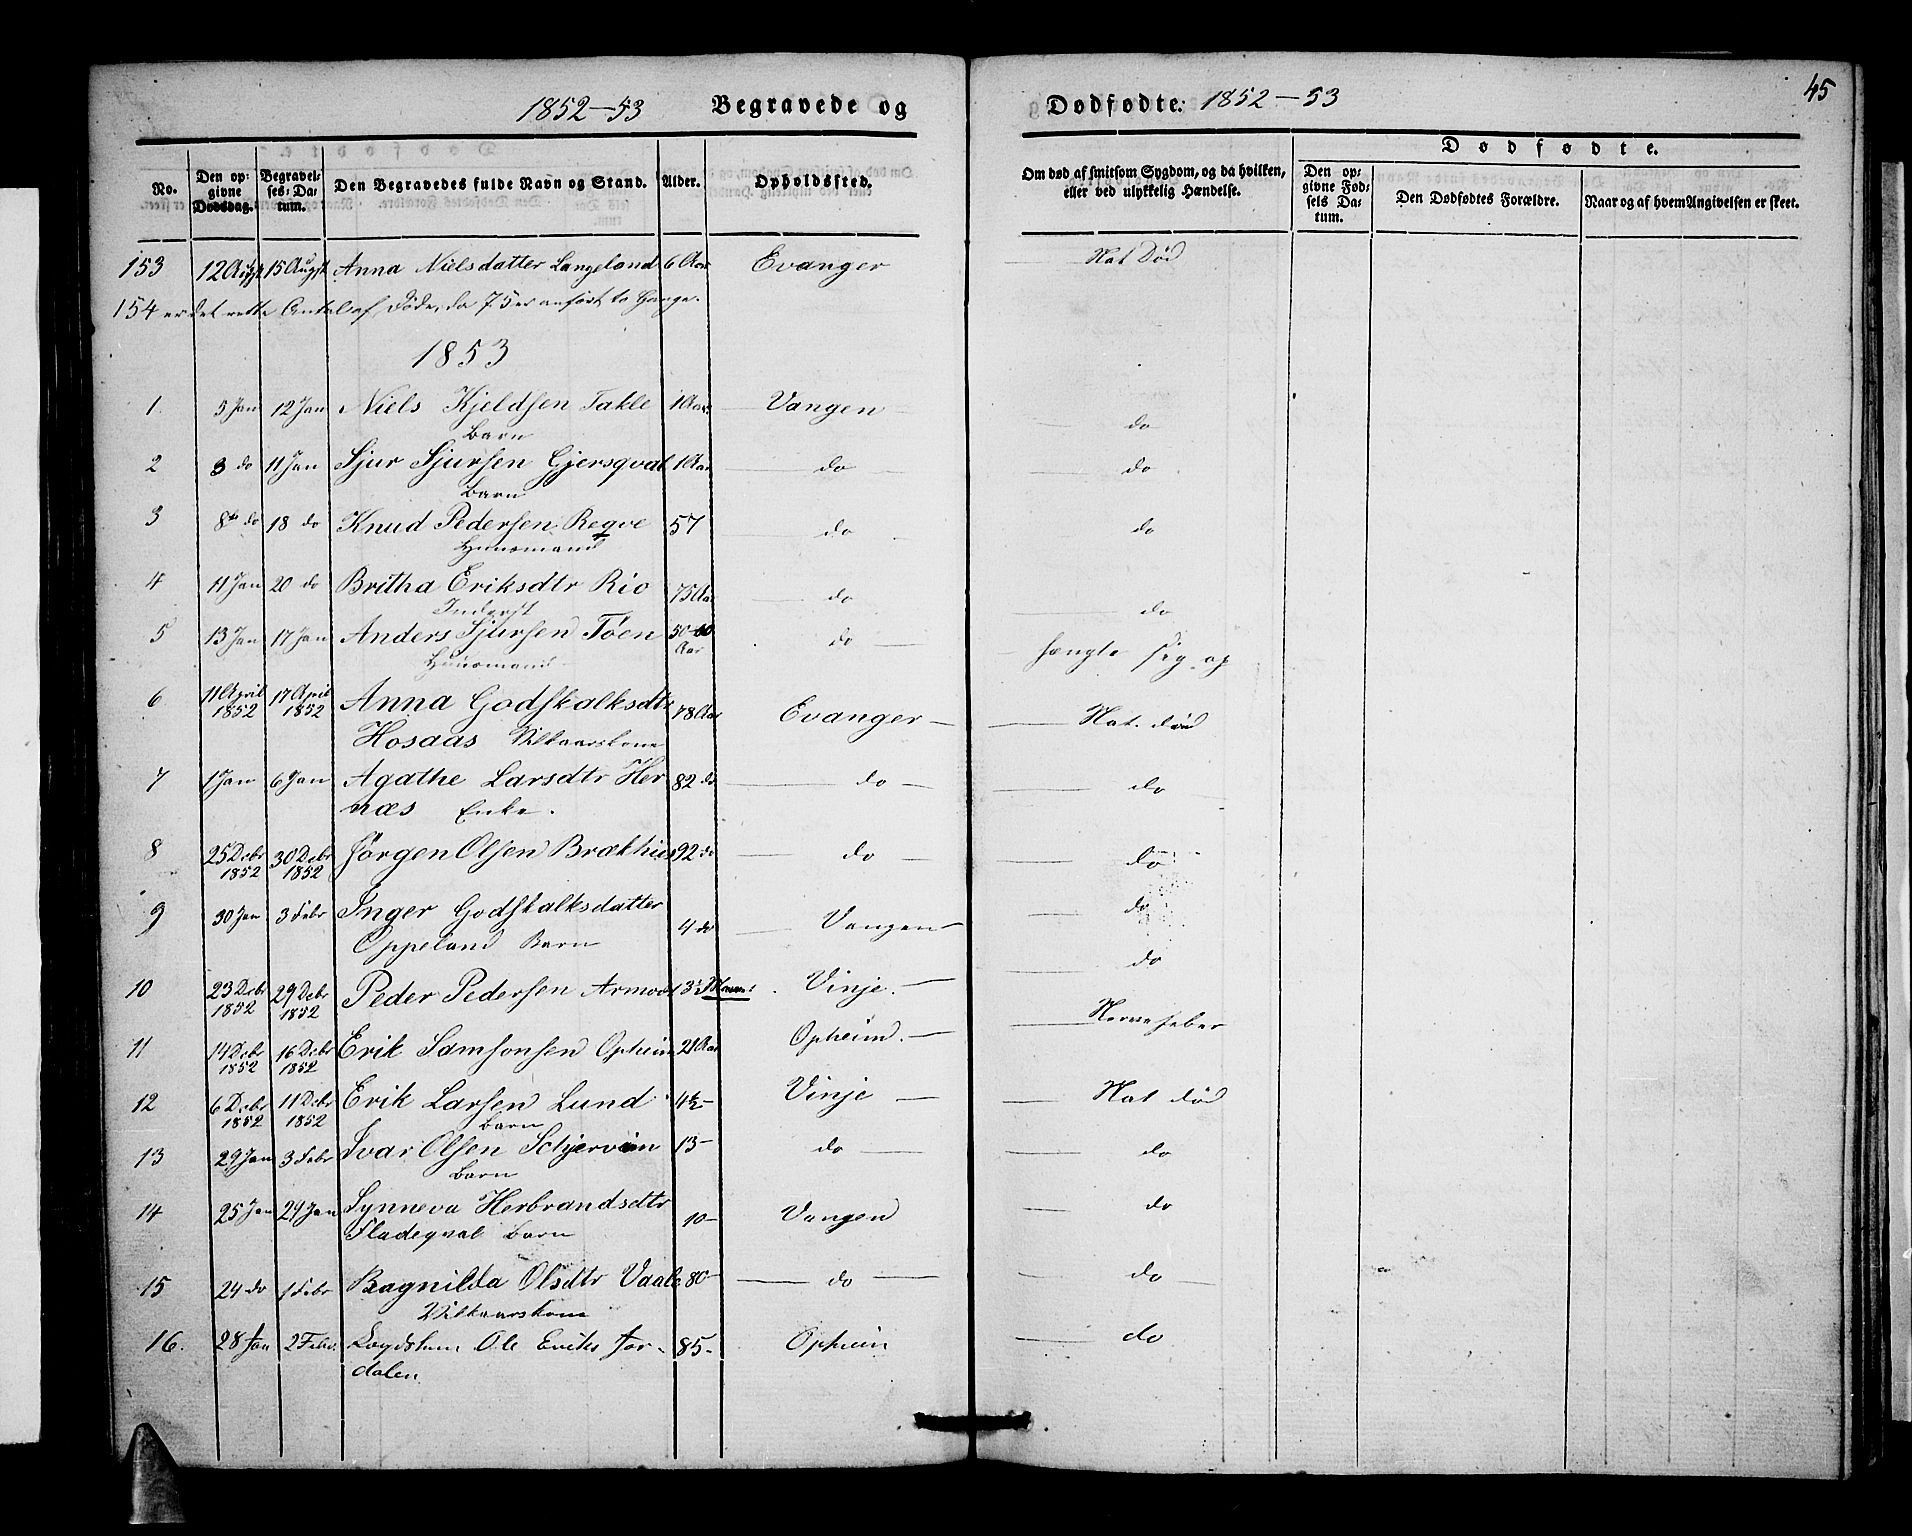 45
1852-53 Begravede og Dødfødte: 1852-53
Dødfødte.
No. Den opgivne Dødsdag. Begravelses-Datum. Den Begravedes fulde Navn og Stand. Alder. Opholdssted. Om død af smitsom Sygdom, og da hvilken, eller ved ulykkelig Hændelse. Den opgivne Fødsels Datum. Den Dødfødtes Forældre. Naar og af hvem Angivelsen er skeet.
153 12 Augst 15 Augst Anna Nielsdatter Langeland 6 Aar Evanger Nat Død
154 er det rette Antal af Døde, da 75 er anført to Gange.
1853
1. 5 Jan 12 Jan Niels Kjeldsen Takle 1 Aar Vangen do
Barn
2 3 do 11 Jan Sjur Sjursen Gjersqval 1 Aar do do
Barn
3 8de do 18 do Knud Pedersen Reqve 57 do do
Huusmand
4 11 Jan 20 do Britha Eriksdtr Rio 75 Aar do do
Inderst
5 13 Jan 17 Jan Anders Sjursen Tøen 50-60 Aar do hængte sig op
Huusmand
6 11 April 1852 17 April 1852 Anna Godskalksdtr 78 Aar Evanger Nat. død
Hosaas Vilkaarskone
7 1 Jan 6 Jan Agathe Larsdtr Her 82 do do do
næs Enke.
8 25 Debr 1852 30 Debr 1852 Jørgen Olsen Brækhus 92 do do do
9 30 Jan 3 Febr Inger Godskalksdatter 4 do Vangen do
Oppeland Barn
10 23 Debr 1852 29 Debr 1852 Peder Pedersen Armod 3 Maan: Vinje. do
11 14 Debr 1852 16 Debr 1852 Erik Samsonsen Opheim 21 Aar Opheim. Nervefeber
12 6 Debr 1852 11 Debr 1852 Erik Larsen Lund 4½- Vinje Nat død
Barn
13 29 Jan 3 Febr Ivar Olsen Schjervem 13- do do
Barn
14 25 Jan 29 Jan Synneva Herbrandsdtr 10- Vangen do
Fladeqval Barn
15 24 do 1 Febr Ragnilda Olsdtr Vaale 80- do do
Vilkaarskone
16. 28 Jan 2 Febr. Ole Eriks Jor- 85- Opheim do
dalen